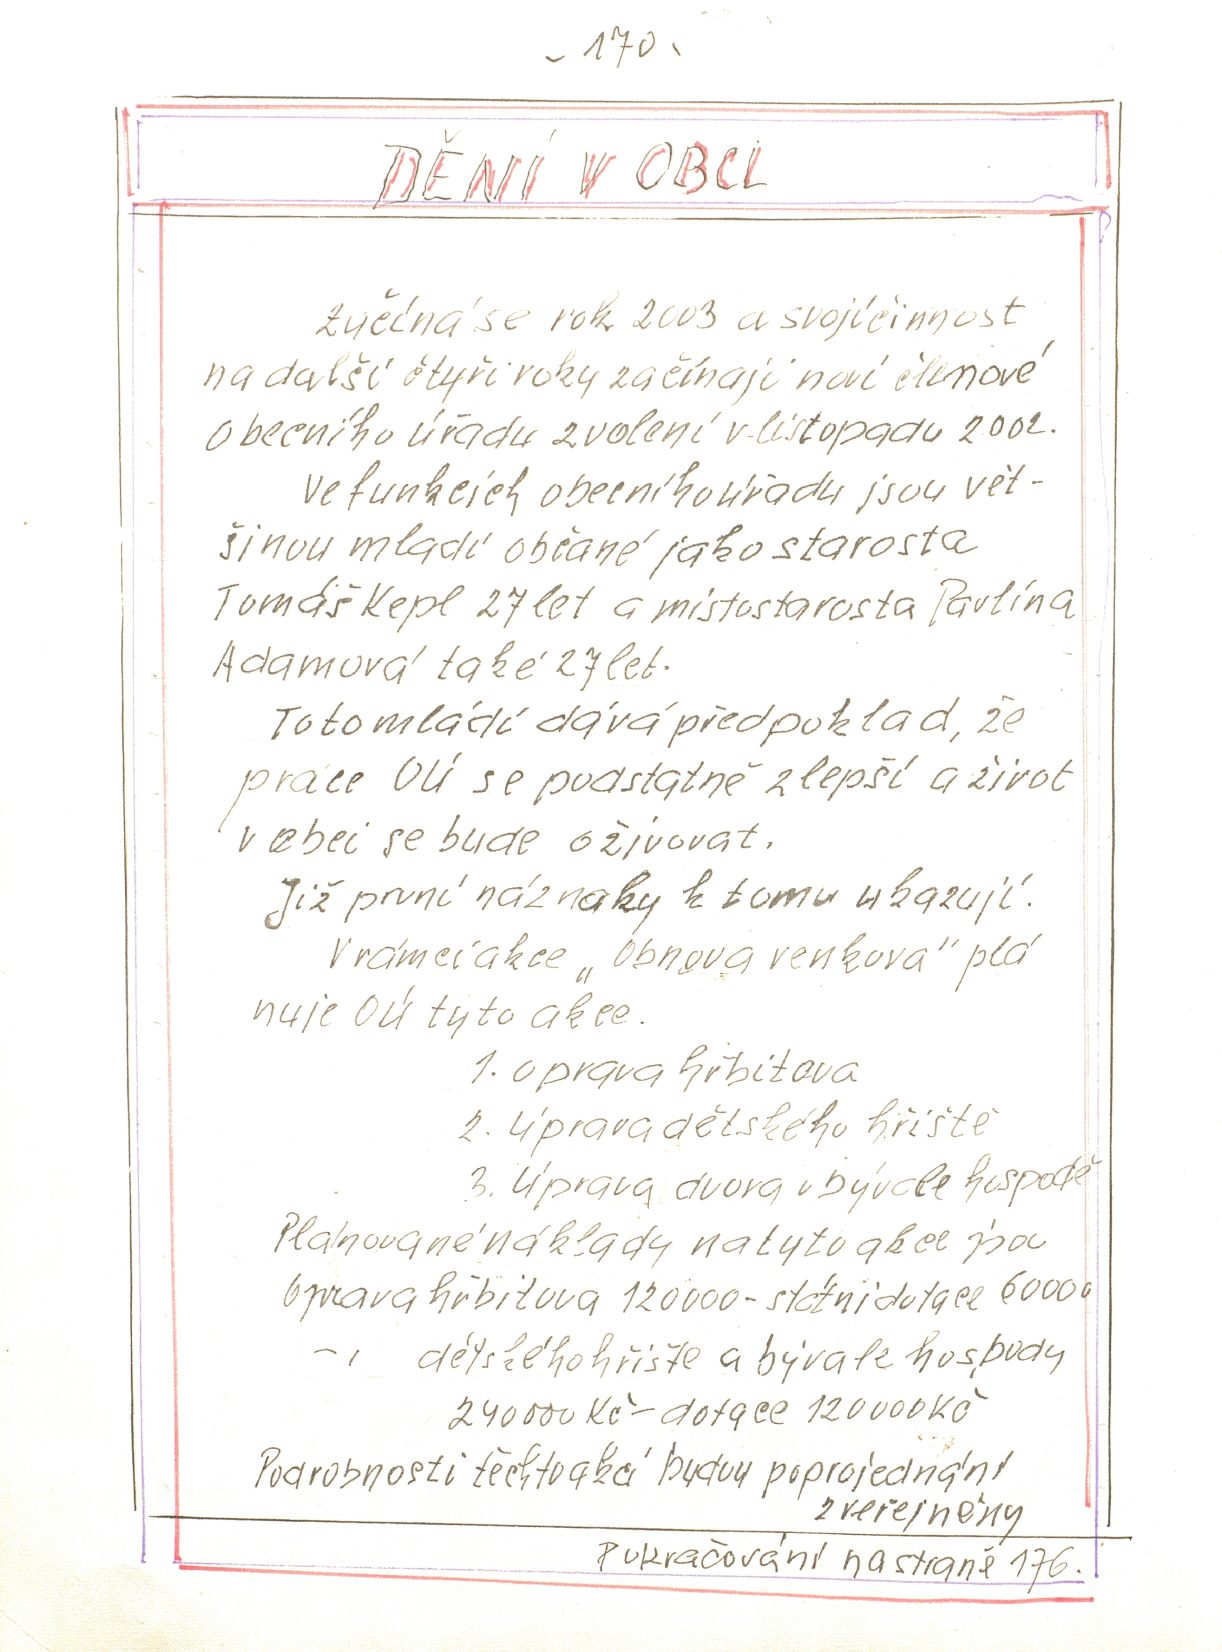 - 170 -
DĚNÍ V OBCI
Začíná se rok 2003 a svojí činnost
na další čtyři roky začínají noví členové
Obecního úřadu zvolení v listopadu 2002.
Ve funkcích obecního úřadu jsou vět-
šinou mladí občané jako starosta
Tomáš Kepl 27 let a místostarosta Pavlína
Adamová také 27 let.
Toto mládí dává předpoklad, že
práce OÚ se podstatně zlepší a život
v obci se bude oživovat.
Již první náznaky k tomu ukazují.
V rámci akce „Obnova venkova" plá
nuje OÚ tyto akce.
1. oprava hřbitova
2. Úprava dětského hřiště
3. Úprava dvora v bývalé hospodě
Plánované náklady na tyto akce jsou
Oprava hřbitova 120000 - státní dotace 60000
-,, dětského hřiště a bývalé hospody
240000 Kč - dotace 120000 Kč
Podrobnosti těchto akcí budou po projednání
zveřejněny
Pokračování na straně 176.